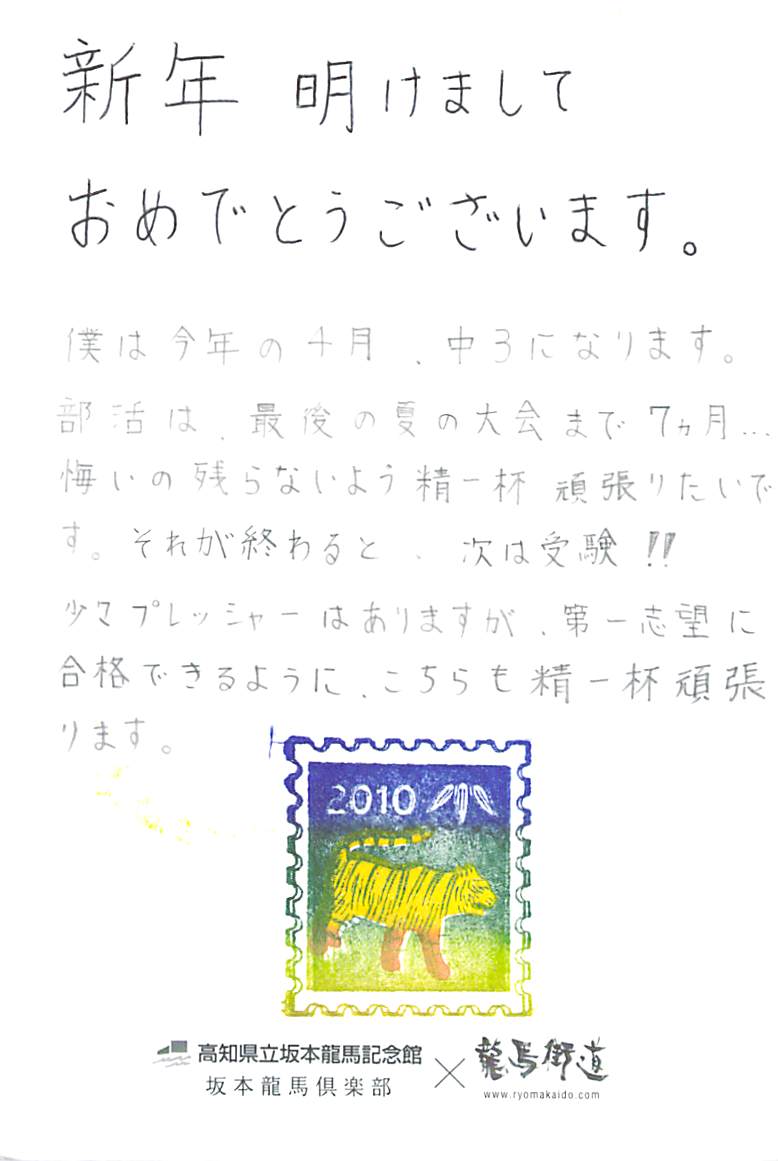 新年 明けまして
おめでとうございます。
僕は今年の4月、中3になります。
部活は、最後の夏の大会まで7ヵ月...
悔いの残らないよう精一杯 頑張りたいで
す。それが終わると、次は受験!!
少々プレッシャーはありますが、第一志望に
合格できるように、こちらも精一杯頑張
ります。
2010
高知県立坂本龍馬記念館
坂本龍馬倶楽部
×
龍馬街道
www.ryomakaido.com